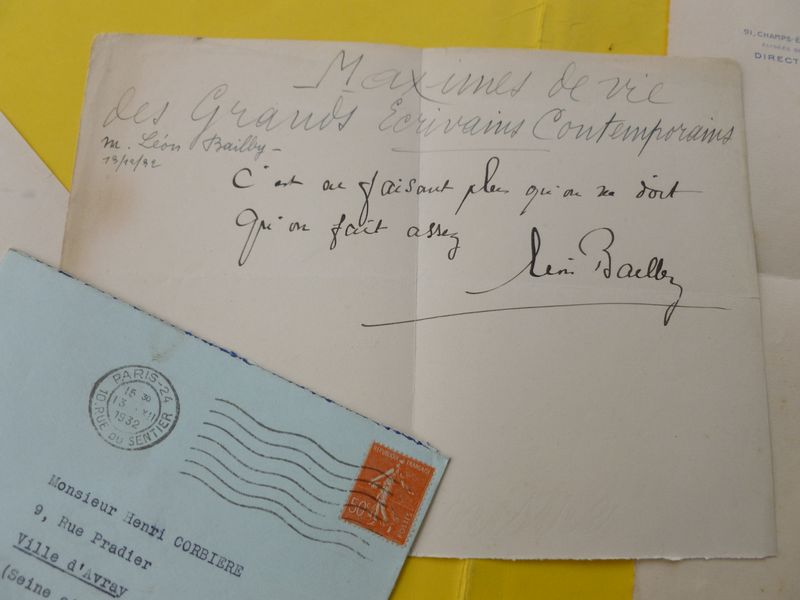 Maximes de vie
des Grands Ecrivains Contemporains
M. Léon Bailby -
13/12/32
C'est en faisant plus qu'on ne doit
qu'on fait assez
Léon Bailby
91, CHAMPS-E
DIRECT
PARIS-24
15 30
13 XII
1932
10. RUE DU SENTIER
REPUBLIQUE FRANÇAISE
50c
POSTES
Monsieur Henri CORBIERE
9, Rue Pradier
Ville d'Avray
(Seine